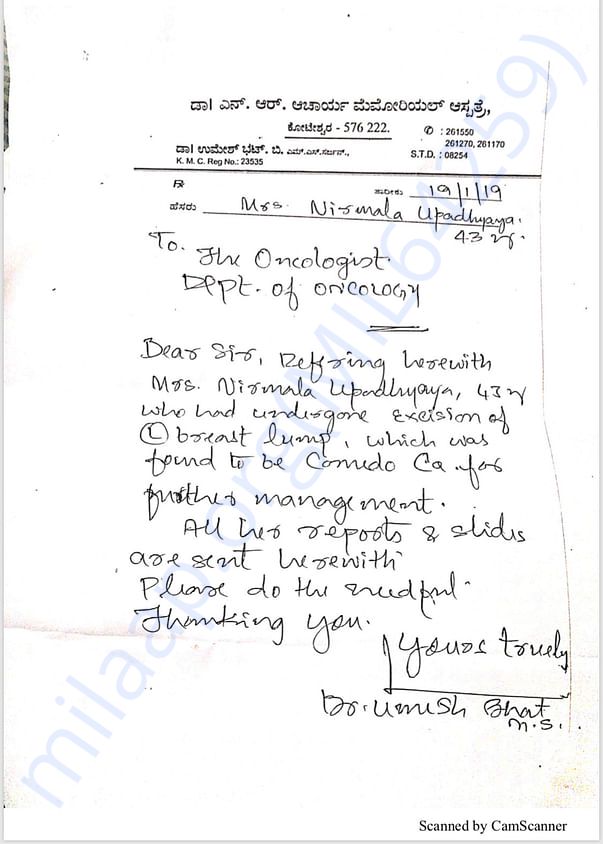 ಡಾ| ಎನ್. ಆರ್. ಆಚಾರ್ಯ ಮೆಮೋರಿಯಲ್ ಆಸ್ಪತ್ರೆ,
ಕೋಟೇಶ್ವರ - 576 222.
✆ : 261550
261270, 261170
ಡಾ| ಉಮೇಶ್ ಭಟ್. ಬಿ. ಎಮ್.ಎಸ್.ಸರ್ಜನ್.,
S.T.D. : 08254
K. M. C. Reg No.: 23535
℞ ತಾರೀಕು 19/1/19
ಹೆಸರು Mrs. Nirmala Upadhyaya.
43 yr.
To.
The Oncologist.
Dept. of ONCOLOGY
Dear Sir, Reffring herewith
Mrs. Nirmala Upadhyaya, 43 yr
who had undergone excision of
Ⓛ breast lump, which was
found to be Comedo Ca. for
further management.
All her reports & slides
are sent herewith
Please do the needful.
Thanking you.
Yours truely
Dr. Umesh Bhat
M.S.
milaap.org(MIL64259)
Scanned by CamScanner